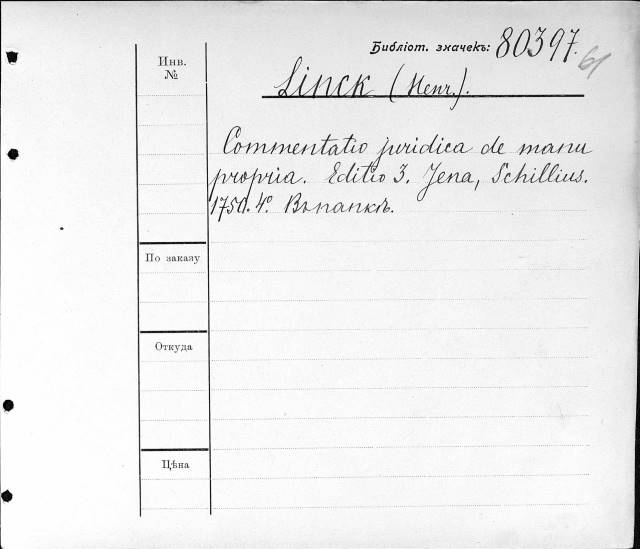 Библіот. значекъ: 80397. 61
Инв.
№
Linck (Henr.).
Commentatio juridica de manu
propria. Editio 3. Jena, Schillius.
1750. 4º. Въ папкѣ.
По заказу
Откуда
Цѣна